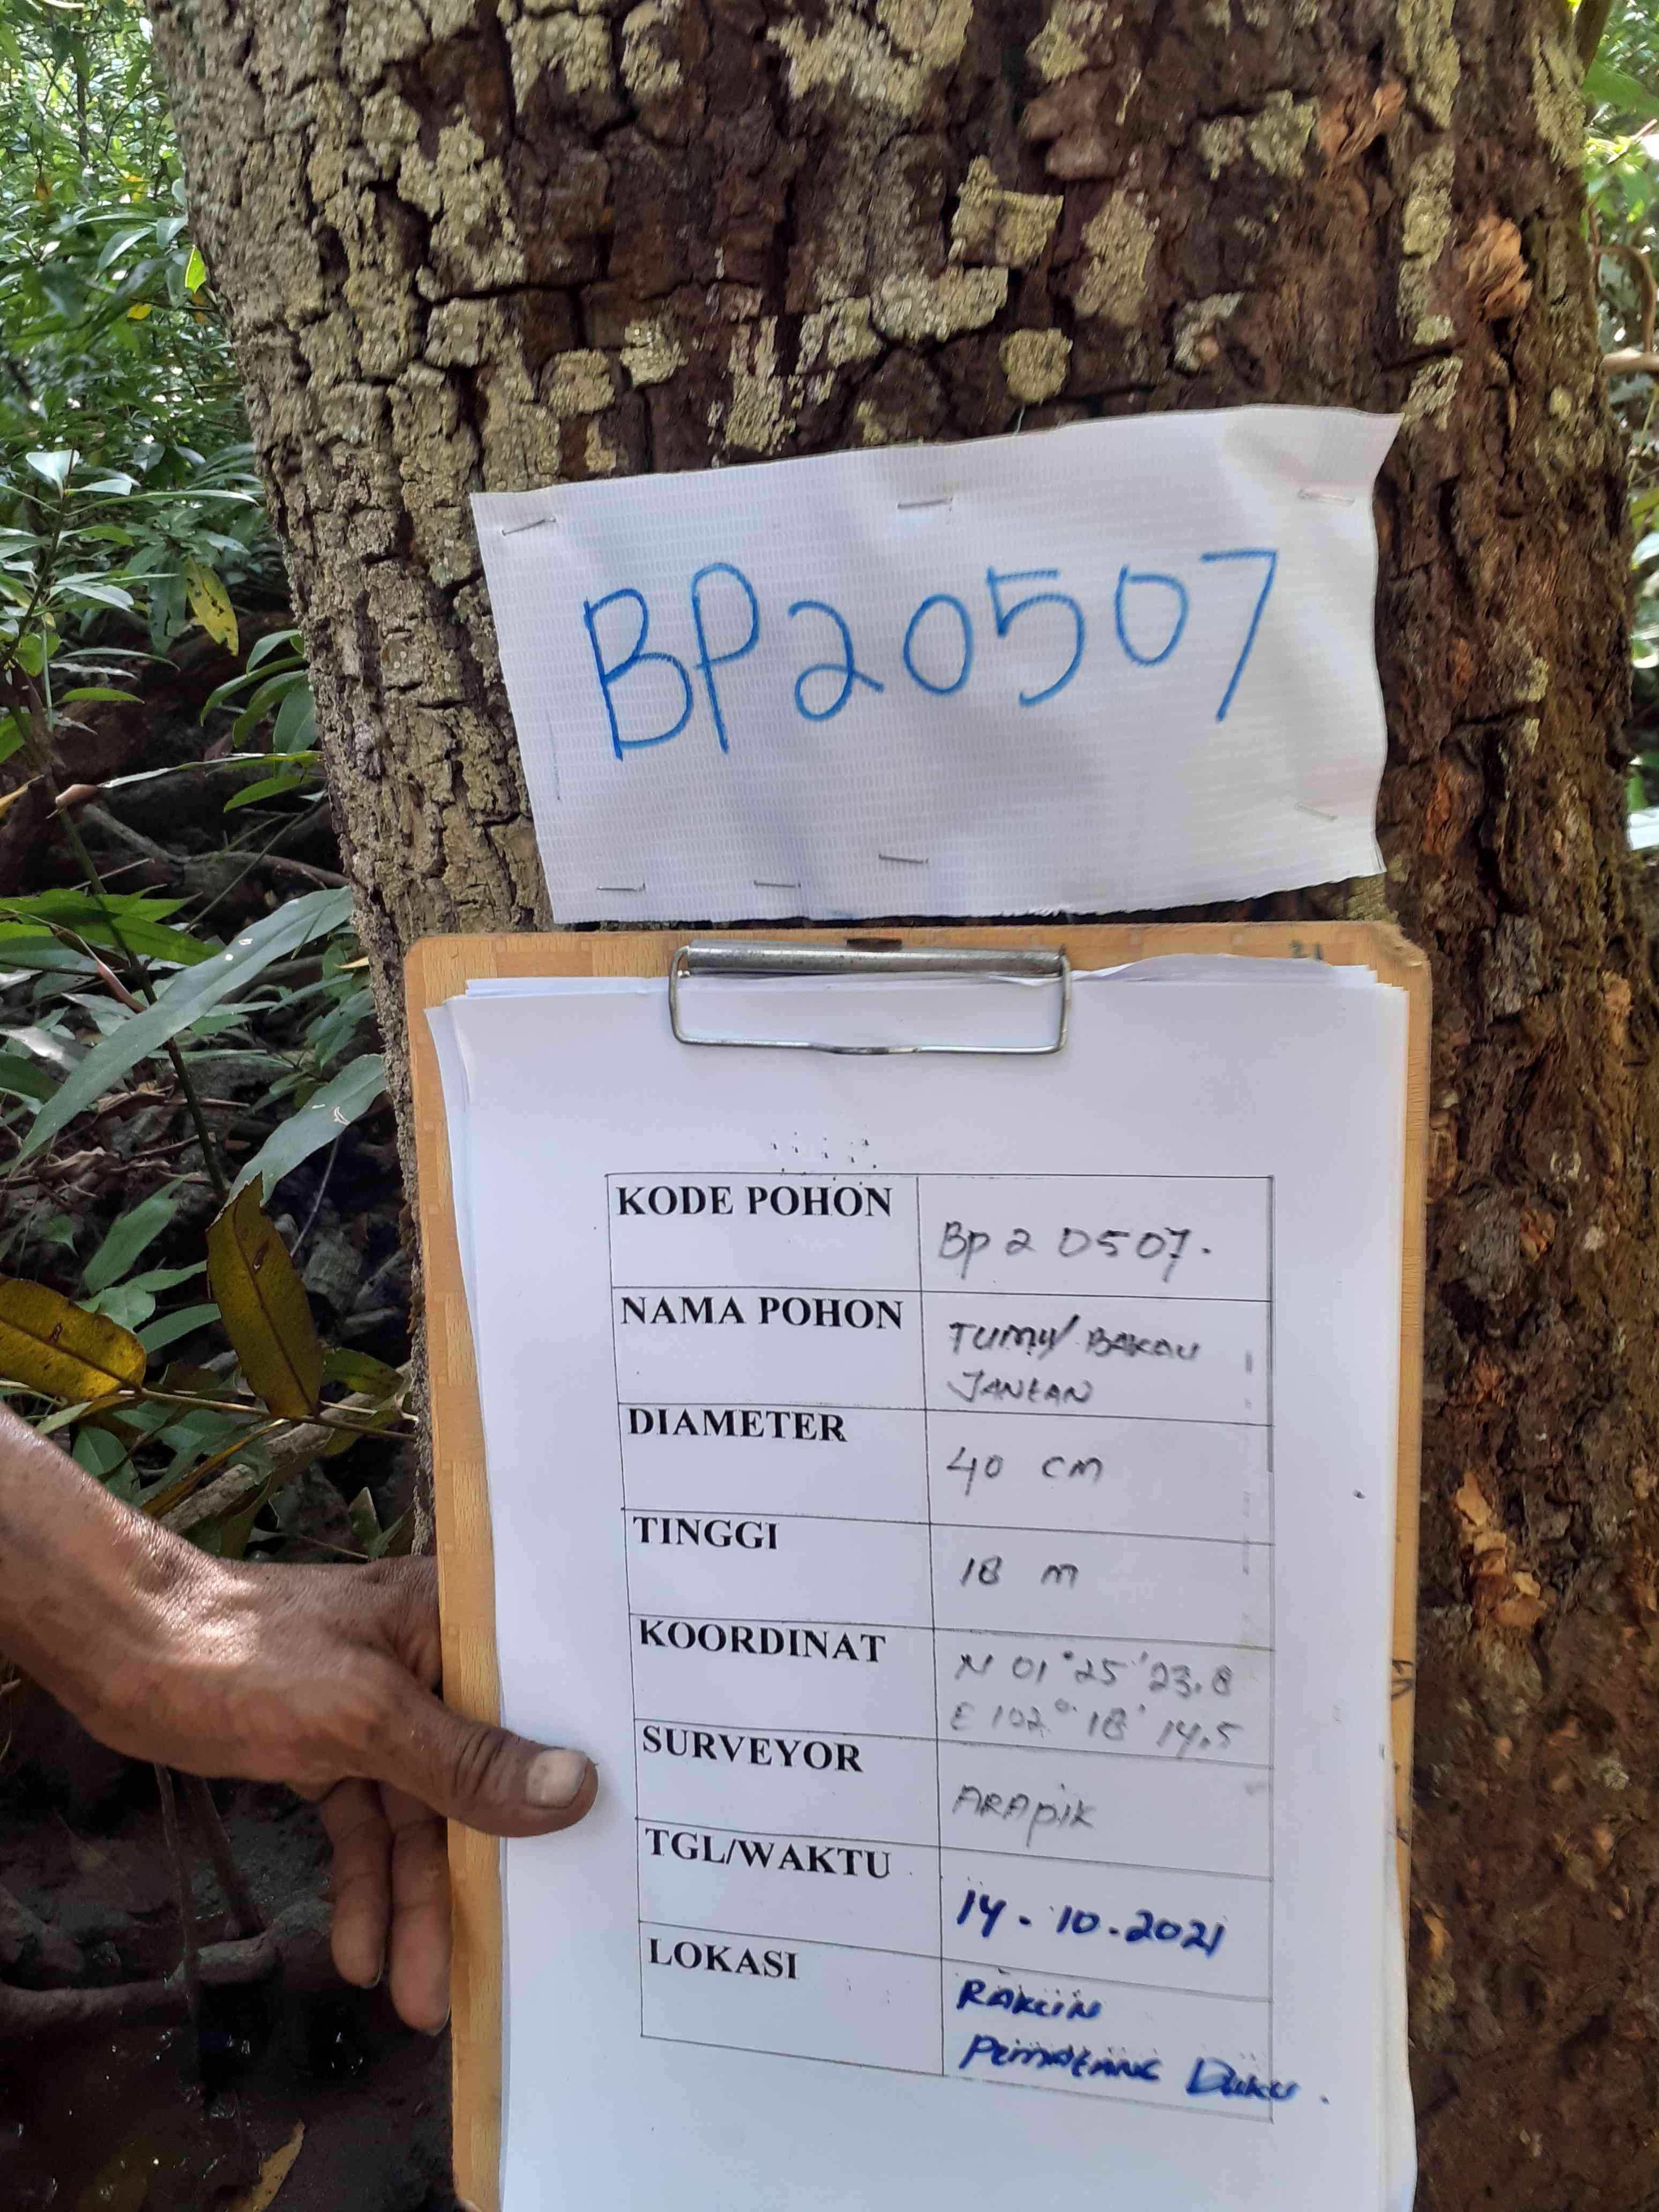 BP20507
KODE POHON
BP2 0507.
NAMA POHON
TUMU/ BAKAU
JANTAN
DIAMETER
40 cm
TINGGI
18 m
KOORDINAT
N 01°25'23.8
E 102°18'14.5
SURVEYOR
ARAPIK
TGL/WAKTU
14.10.2021
LOKASI
Pematang Duku.